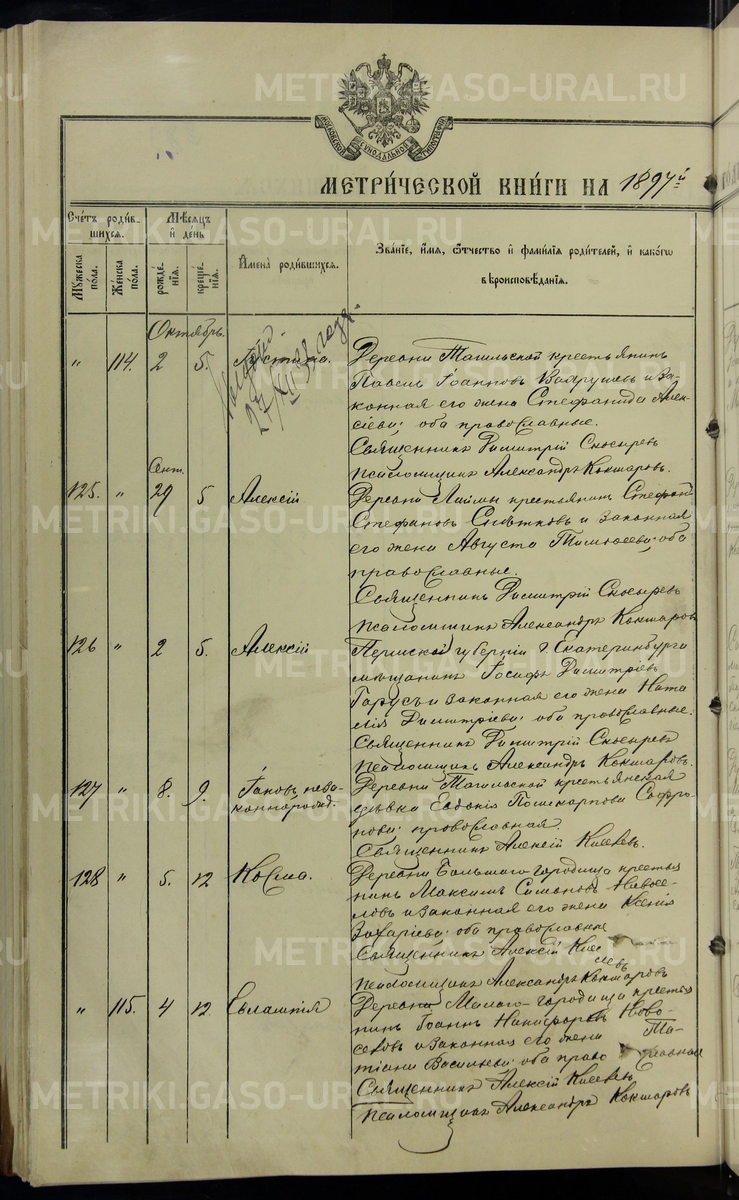 МОСКОВСКОЙ СѴНОДАЛЬНОЙ ТИПОГРАФІИ
МЕТРИ́ЧЕСКОЙ КНИ́ГИ НА 1897й
Сче́тъ роди́в-
шихся.
Мѣ́сяцъ
и҆ де́нь
И҆мена̀ роди́вшихся.
Зва́ніе, и҆́мя, ѻ҆́тчество и҆ фами́лія роди́телей, и҆ како́гѡ
вѣроисповѣ́данія.
Му́жеска по́ла.
Же́нска по́ла.
рожде́нія.
креще́нія.
Октябрь.
" 114. 2 5. Іустина. Деревни Тагильской крестьянинъ
Павелъ Іоанновъ Вахрушевъ и за-
конная его жена Стефанида Алек-
сіева; оба православные.
Священникъ Димитрій Сносыревъ
Псаломщикъ Александръ Кокшаровъ.
27/XII 38 года.
Сент.
125. " 29 5 Алексій Деревни крестьянинъ Стефанъ
Стефановъ и законная
его жена Августа Тимофеева; оба
православные.
Священникъ Димитрій Сносыревъ
Псаломщикъ Александръ Кокшаровъ
126 " 2 5. Алексій Пермской губерніи г. Екатеринбурга
мѣщанинъ Іосифъ Димитріевъ
Гарусъ и законная его жена Ната-
лія Димитріева; оба православные.
Священникъ Димитрій Сносыревъ
Псаломщикъ Александръ Кокшаровъ.
127 " 8. 9. Іаковъ неза-
коннорожд. Деревни Тагильской крестьянская
дѣвка Евдокія Поликарпова Софро-
нова; православная.
Священникъ Алексій Киселевъ.
128 " 5. 12 Косма. Деревни Большаго-городища кресть-
нинъ Максимъ Симоновъ Новосе-
ловъ и законная его жена Ксенія
Захаріева; оба православные
Священникъ Алексій Киселевъ
Псаломщикъ Александръ Кокшаровъ
" 115. 4 12. Евлампія Деревни Малаго-городища кресть-
нинъ Іоаннъ Никифоровъ Ново-
селовъ и законная его жена Та-
тіана Васильева; оба православные
Священникъ Алексій Киселевъ
Псаломщикъ Александръ Кокшаровъ
METRIKI.GASO-URAL.RU